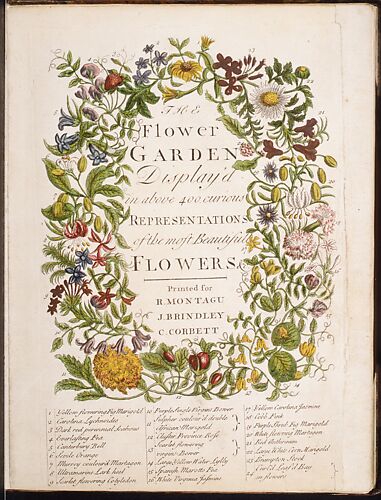 THE
Flower
GARDEN
Display'd
in above 400 curious
REPRESENTATIONS
of the most Beautiful
FLOWERS,
Printed for
R. MONTAGU
J. BRINDLEY
C. CORBETT
1 Yellow flowering Fig Marigold
2 Carolina Lychnoides
3 Dark red perennial
4 Everlasting Pea
5 Canterbury Bell
6 Sevile Orange
7 Murrey colour'd Martagon
8 Ultramarine Lark heel
9 Scarlet flowering Cotyledon
10 Purple Single Virgins Bower
11 Sulphur colour'd double
African Marigold
12 Cluster Province Rose
13 Scarlet flowering
virgins Bower
14 Large Yellow Water Lylly
15 Spanish Marvotts Pea
16 White Virginia Jassmine
17 Yellow Carolina Jasmine
18 Cobb Pink
19 Purple Fig Marigold
20 White flowering Martagon
21 Red
22 Large White Corn Marigold
23 Stock
in
flowers